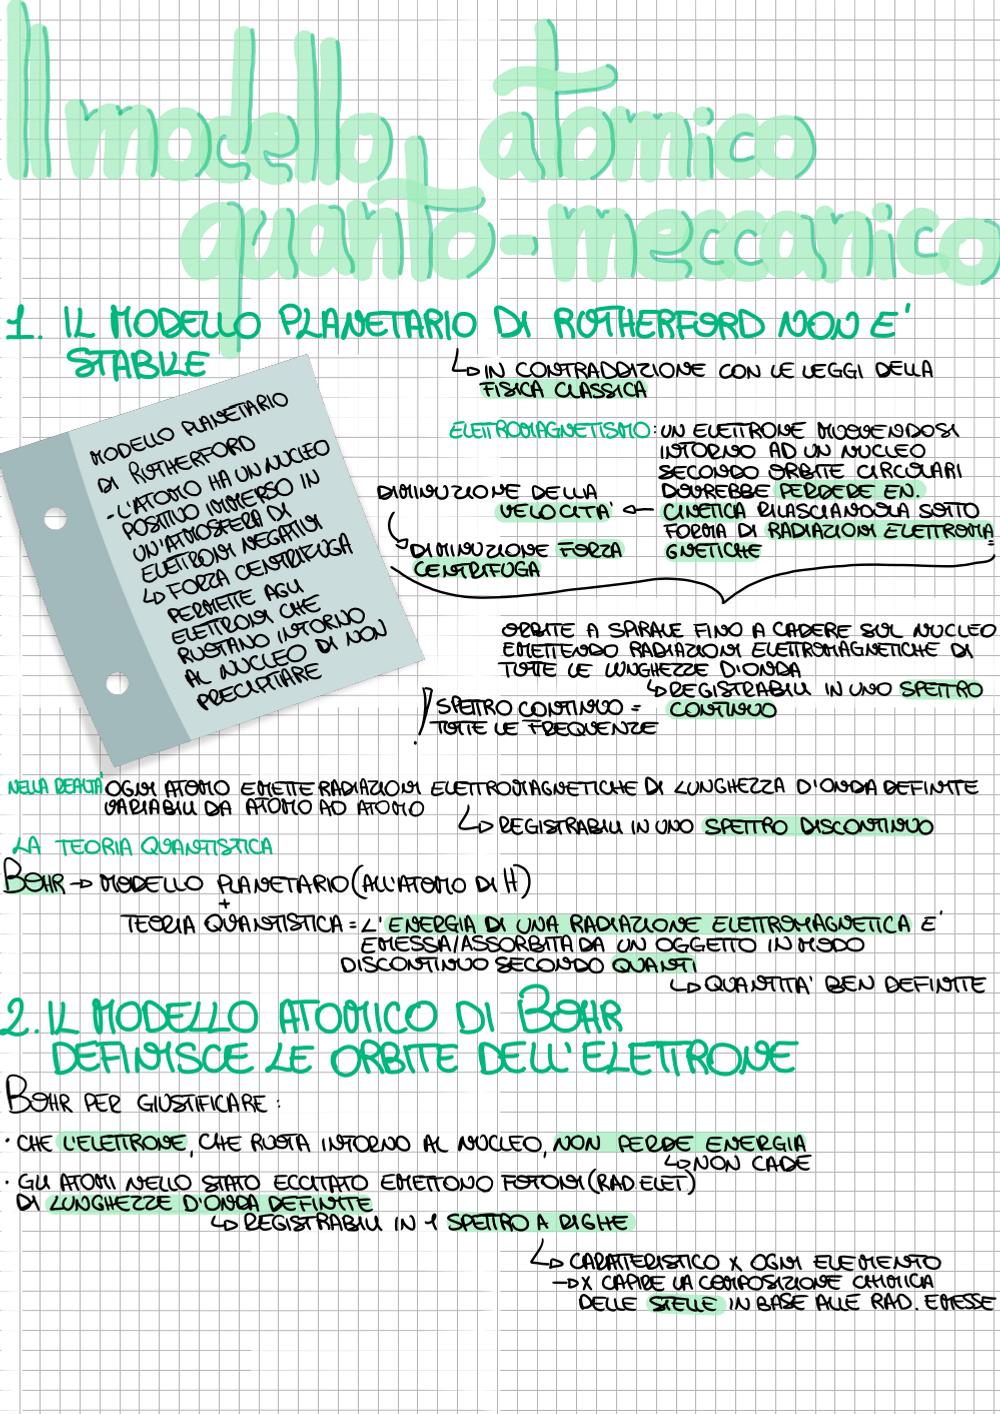 Il modello atomico
quanto-meccanico
1. IL MODELLO PLANETARIO DI RUTHERFORD NON E'
STABILE
↳ IN CONTRADDIZIONE CON LE LEGGI DELLA
FISICA CLASSICA
MODELLO PLANETARIO
DI RUTHERFORD
- L'ATOMO HA UN NUCLEO
POSITIVO IMMERSO IN
UN'ATMOSFERA DI
ELETTRONI NEGATIVI
↳ FORZA CENTRIFUGA
PERMETTE AGLI
ELETTRONI CHE
RUOTANO INTORNO
AL NUCLEO DI NON
PRECIPITARE
ELETTROMAGNETISMO: UN ELETTRONE MUOVENDOSI
INTORNO AD UN NUCLEO
SECONDO ORBITE CIRCOLARI
DOVREBBE PERDERE EN.
CINETICA RILASCIANDOLA SOTTO
FORMA DI RADIAZIONI ELETTROMA=
GNETICHE
DIMINUZIONE DELLA
VELOCITA' ←
↳ DIMINUZIONE FORZA
CENTRIFUGA
ORBITE A SPIRALE FINO A CADERE SUL NUCLEO
EMETTENDO RADIAZIONI ELETTROMAGNETICHE DI
TUTTE LE LUNGHEZZE D'ONDA
↳ REGISTRABILI IN UNO SPETTRO
CONTINUO
! SPETTRO CONTINUO =
TUTTE LE FREQUENZE
NELLA REALTA' OGNI ATOMO EMETTE RADIAZIONI ELETTROMAGNETICHE DI LUNGHEZZA D'ONDA DEFINITE
VARIABILI DA ATOMO AD ATOMO
↳ REGISTRABILI IN UNO SPETTRO DISCONTINUO
LA TEORIA QUANTISTICA
BOHR → MODELLO PLANETARIO (ALL'ATOMO DI H)
+
TEORIA QUANTISTICA = L'ENERGIA DI UNA RADIAZIONE ELETTROMAGNETICA E'
EMESSA/ASSORBITA DA UN OGGETTO IN MODO
DISCONTINUO SECONDO QUANTI
↳ QUANTITA' BEN DEFINITE
2. IL MODELLO ATOMICO DI BOHR
DEFINISCE LE ORBITE DELL'ELETTRONE
BOHR PER GIUSTIFICARE:
· CHE L'ELETTRONE, CHE RUOTA INTORNO AL NUCLEO, NON PERDE ENERGIA
↳ NON CADE
· GLI ATOMI NELLO STATO ECCITATO EMETTONO FOTONI (RAD ELET)
DI LUNGHEZZE D'ONDA DEFINITE
↳ REGISTRABILI IN 1 SPETTRO A RIGHE
↳ CARATTERISTICO X OGNI ELEMENTO
→ X CAPIRE LA COMPOSIZIONE CHIMICA
DELLE STELLE IN BASE ALLE RAD. EMESSE